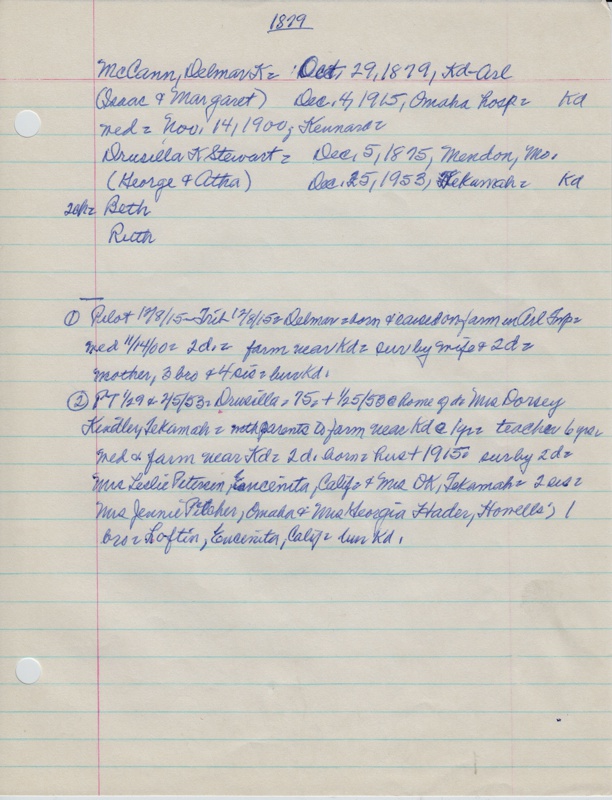 1879
McCann, Delmar K= Oct. 29, 1879, Kd-Arl
(Isaac & Margaret) Dec. 4, 1915, Omaha hosp= Kd
wed= Nov. 14, 1900, Kennard=
Drusilla K Stewart= Dec. 5, 1875, Mendon, Mo.
(George & Atha) Dec. 25, 1953, Tekamah= Kd
2ch= Beth
Ruth
① Pilot 12/8/15-Trib 12/8/15= Delmar= born & raised on farm in Arl Tnp=
wed 11/14/00= 2d.= farm near Kd= sur by wife & 2d=
mother, 3 bro & 4 sis= bur Kd.
② PT 1/29 & 2/5/53= Drusilla, 75= + 1/25/53 @ home of da Mrs Dorsey
Kindley, Tekamah= parents to farm near Kd @ 1yr= teacher 6 yrs=
wed & farm near Kd= 2d. 1915= sur by 2d=
Mrs Leslie Petersen, Encinita, Calif= & Mrs DK, Tekamah= 2 sis=
Mrs Jennie Pilcher, Omaha & Mrs Georgia Hader, Howells; 1
bro= Loftin, Encinita, Calif= bur Kd.